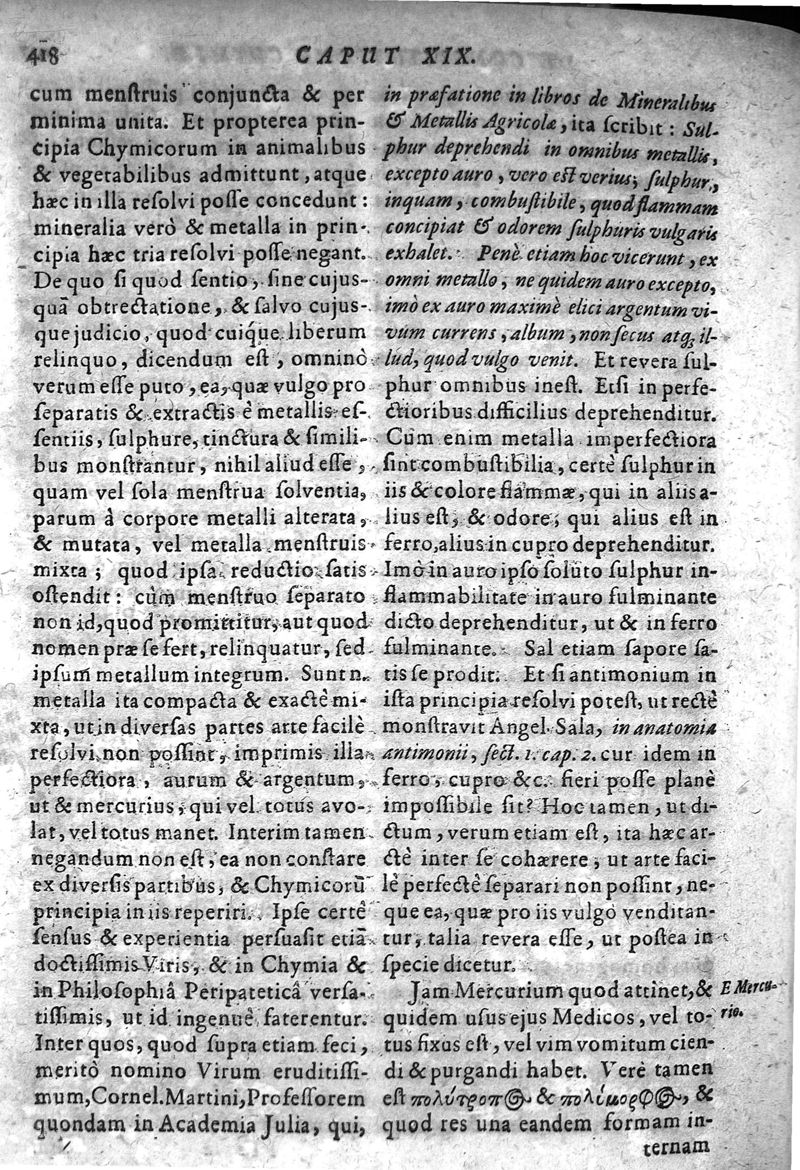 418 CAPUT XIX.
cum menſtruis conjuncta & per
minima unita. Et propterea prin-
cipia Chymicorum in animalibus
& vegetabilibus admittunt, atque
hæc in illa reſolvi poſſe concedunt:
mineralia verò & metalla in prin-
cipia hæc tria reſolvi poſſe negant.
De quo ſi quod ſentio, ſine cujus-
quā obtrectatione, & ſalvo cujus-
que judicio, quod cuiq́ue liberum
relinquo, dicendum eſt, omninò
verum eſſe puto, ea, quæ vulgo pro
ſeparatis & extractis è metallis eſ-
ſentiis, ſulphure, tinctura & ſimili-
bus monſtrantur, nihil aliud eſſe,
quam vel ſola menſtrua ſolventia,
parum â corpore metalli alterata,
& mutata, vel metalla menſtruis
mixta; quod ipſa reductio ſatis
oſtendit: cùm menſtruo ſeparato
non id, quod promittitur, aut quod
nomen præ ſe fert, relinquatur, ſed
ipſum metallum integrum. Sunt n.
metalla ita compacta & exactè mi-
xta, ut in diverſas partes arte facilè
reſolvi non poſſint, imprimis illa
perfectiora, aurum & argentum,
ut & mercurius, qui vel totus avo-
lat, vel totus manet. Interim tamen
negandum non eſt, ea non conſtare
ex diverſis partibus, & Chymicorū
principia in iis reperiri. Ipſe certè
ſenſus & experientia perſuaſit etiā
doctiſſimis Viris, & in Chymia &
in Philoſophiâ Peripateticâ verſa-
tiſſimis, ut id ingenuè faterentur.
Inter quos, quod ſupra etiam feci,
meritò nomino Virum eruditiſſi-
mum, Cornel. Martini, Profeſſorem
quondam in Academia Julia, qui,
in præfatione in libros de Mineralibus
& Metallis Agricolæ, ita ſcribit: Sul-
phur deprehendi in omnibus metallis,
excepto auro, vero eſt verius; ſulphur,
inquam, combuſtibile, quod flammam
concipiat & odorem ſulphuris vulgaris
exhalet. Penè etiam hoc vicerunt, ex
omni metallo, ne quidem auro excepto,
imò ex auro maximè elici argentum vi-
vum currens, album, non ſecus atq; il-
lud, quod vulgo venit. Et revera ſul-
phur omnibus ineſt. Etſi in perfe-
ctioribus difficilius deprehenditur.
Cum enim metalla imperfectiora
ſint combuſtibilia, certè ſulphur in
iis & colore flammæ, qui in aliis a-
lius eſt, & odore, qui alius eſt in
ferro, alius in cupro deprehenditur.
Imò in auro ipſo ſoluto ſulphur in-
flammabilitate in auro fulminante
dicto deprehenditur, ut & in ferro
fulminante. Sal etiam ſapore ſa-
tis ſe prodit. Et ſi antimonium in
iſta principia reſolvi poteſt, ut rectè
monſtravit Angel. Sala, in anatomia
antimonii, ſect. 1. cap. 2. cur idem in
ferro, cupro &c. fieri poſſe planè
impoſſibile ſit? Hoc tamen, ut di-
ctum, verum etiam eſt, ita hæc ar-
ctè inter ſe cohærere, ut arte faci-
lè perfectè ſeparari non poſſint, ne-
que ea, quæ pro iis vulgò venditan-
tur, talia revera eſſe, ut poſtea in
ſpecie dicetur.
Jam Mercurium quod attinet, &
quidem uſus ejus Medicos, vel to-
tus fixus eſt, vel vim vomitum cien-
di & purgandi habet. Verè tamen
eſt πολύτροπος & πολύμορφος, &
quod res una eandem formam in-
ternam
E Mercu-
rio.